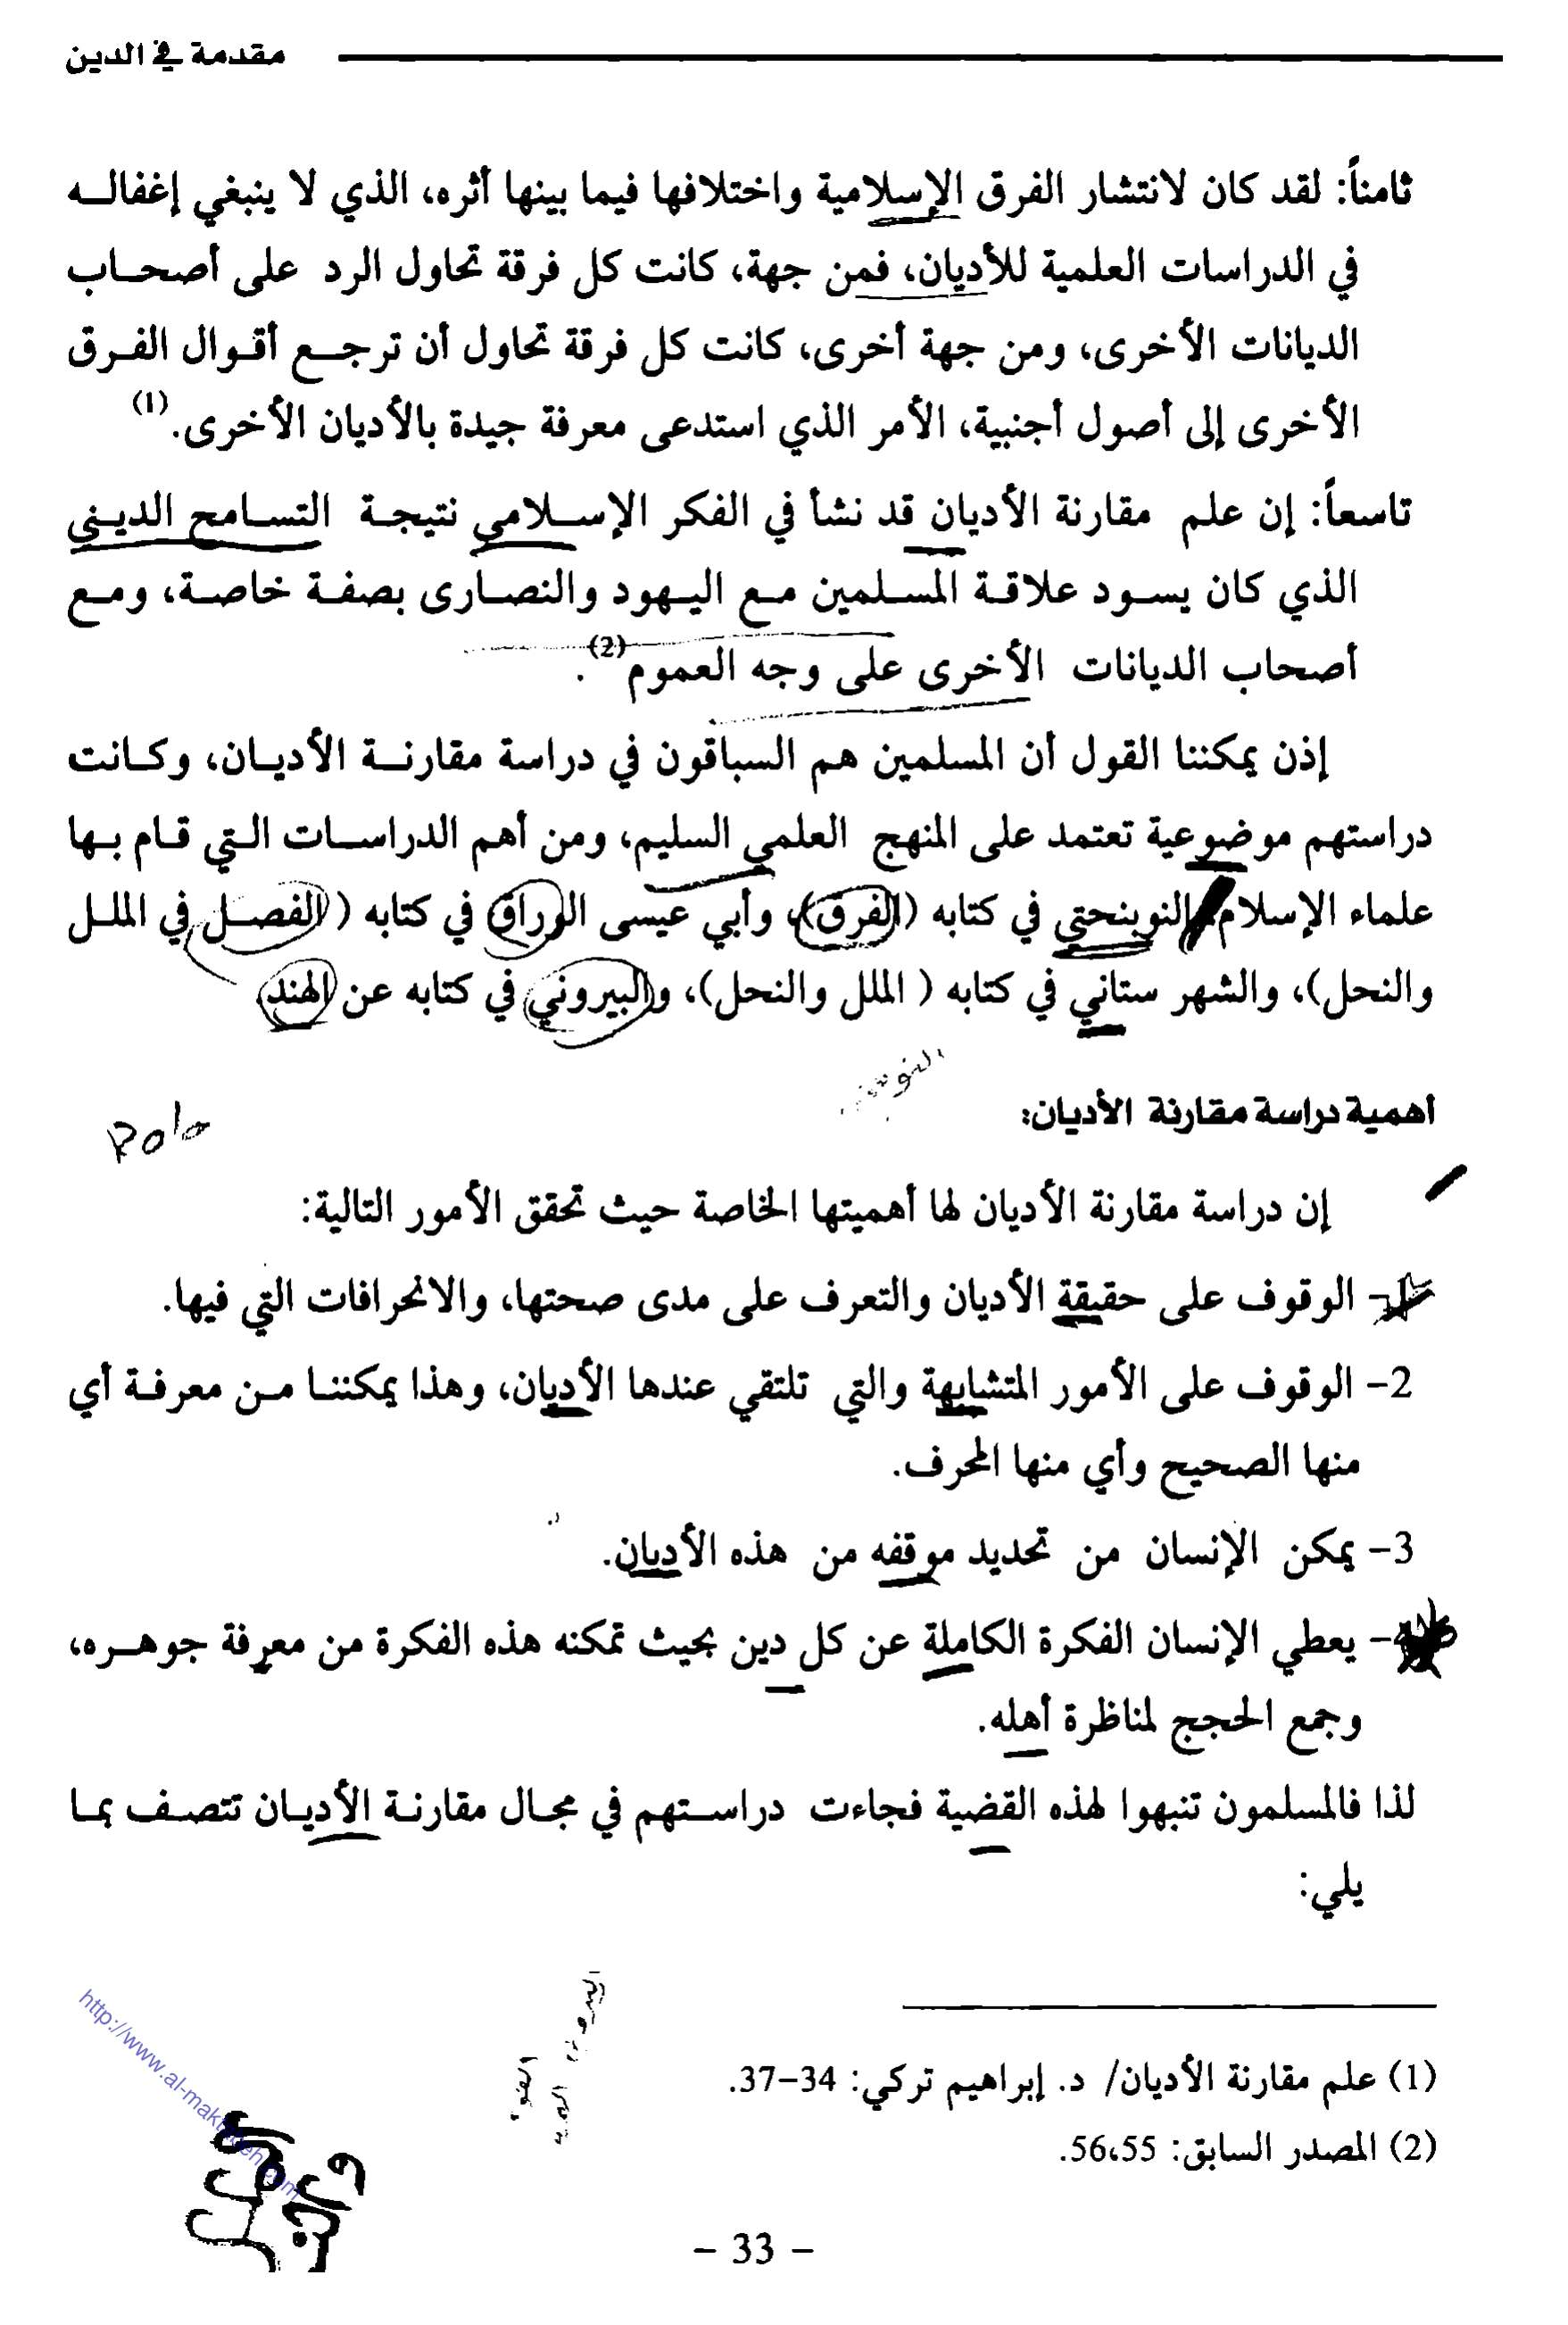 مقدمة في الدين
ثامناً: لقد كان لانتشار الفرق الإسلامية واختلافها فيما بينها أثره، الذي لا ينبغي إغفاله
في الدراسات العلمية للأديان، فمن جهة، كانت كل فرقة تحاول الرد على أصحاب
الديانات الأخرى، ومن جهة أخرى، كانت كل فرقة تحاول أن ترجع أقوال الفرق
الأخرى إلى أصول أجنبية، الأمر الذي استدعى معرفة جيدة بالأديان الأخرى.(1)
تاسعاً: إن علم مقارنة الأديان قد نشأ في الفكر الإسلامي نتيجة التسامح الديني
الذي كان يسود علاقة المسلمين مع اليهود والنصارى بصفة خاصة، ومع
أصحاب الديانات الأخرى على وجه العموم(2).
إذن يمكننا القول أن المسلمين هم السباقون في دراسة مقارنة الأديان، وكانت
دراستهم موضوعية تعتمد على المنهج العلمي السليم، ومن أهم الدراسات التي قام بها
علماء الإسلام النوبنحتي في كتابه (الفرق)، وأبي عيسى الوراق في كتابه ( الفصل في الملل
والنحل)، والشهر ستاني في كتابه ( الملل والنحل)، والبيروني في كتابه عن الهند
أهمية دراسة مقارنة الأديان:
إن دراسة مقارنة الأديان لها أهميتها الخاصة حيث تحقق الأمور التالية:
1- الوقوف على حقيقة الأديان والتعرف على مدى صحتها، والانحرافات التي فيها.
2- الوقوف على الأمور المتشابهة والتي تلتقي عندها الأديان، وهذا يمكننا من معرفة أي
منها الصحيح وأي منها المحرف.
3- يمكن الإنسان من تحديد موقفه من هذه الأديان.
4- يعطي الإنسان الفكرة الكاملة عن كل دين بحيث تمكنه هذه الفكرة من معرفة جوهره،
وجمع الحجج لمناظرة أهله.
لذا فالمسلمون تنبهوا لهذه القضية فجاءت دراستهم في مجال مقارنة الأديان تتصف بما
يلي:
(1) علم مقارنة الأديان/ د. إبراهيم تركي: 34-37.
(2) المصدر السابق: 55،56.
http://www.al-maktabeh.com
- 33 -